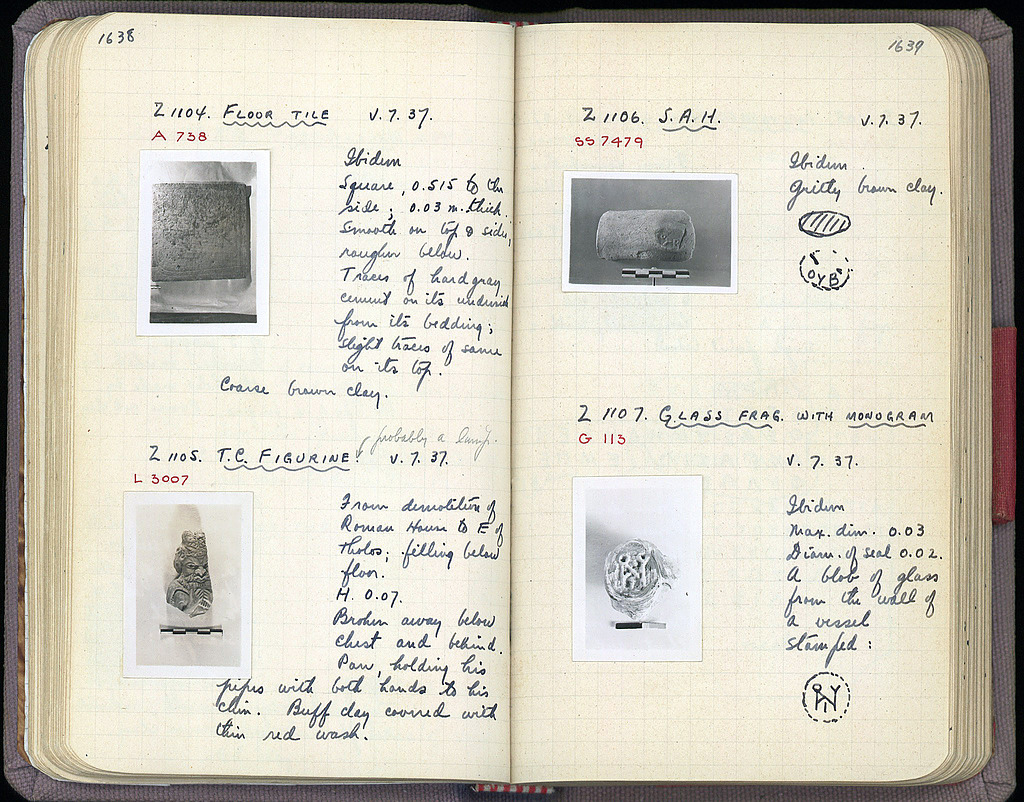 1638
Z 1104. FLOOR TILE V. 7. 37.
A 738
Ibidem
Square, 0.515 to the
side; 0.03 m. thick.
Smooth on top & sides,
rougher below.
Traces of hard gray
cement on its underside
from its bedding;
slight traces of same
on its top.
Coarse brown clay.
probably a lamp.
Z 1105. T.C. FIGURINE. V. 7. 37.
L 3007
From demolition of
Roman House to E of
Tholos; filling below
floor.
H. 0.07.
Broken away below
chest and behind.
Pan, holding his
pipes with both hands to his
chin. Buff clay covered with
thin red wash.
1639
Z 1106. S.A.H. V. 7. 37.
SS 7479
Ibidem
Gritty brown clay.
OYB
Z 1107. GLASS FRAG. WITH MONOGRAM
G 113
V. 7. 37.
Ibidem
Max. dim. 0.03
Diam. of seal 0.02.
A blob of glass
from the wall of
a vessel
stamped: